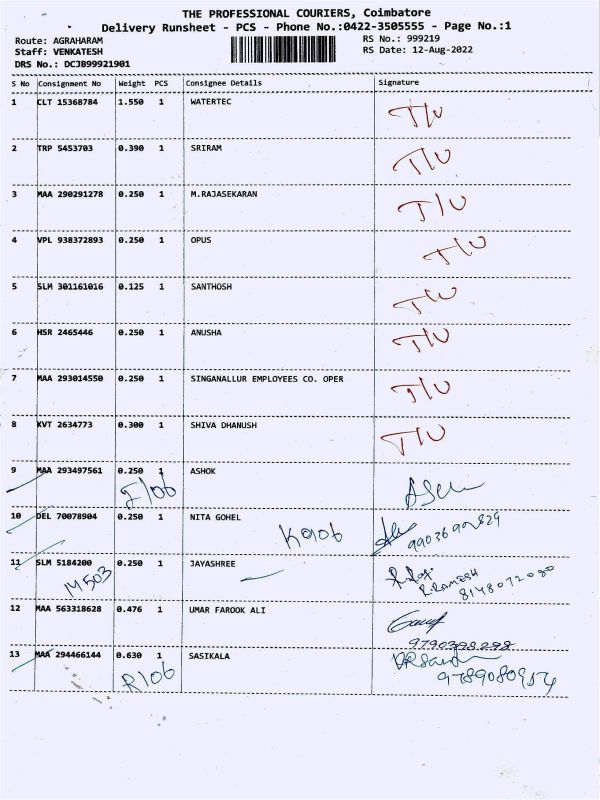 THE PROFESSIONAL COURIERS, Coimbatore
Delivery Runsheet - PCS - Phone No.:0422-3505555 - Page No.:1
Route: AGRAHARAM RS No.: 999219
Staff: VENKATESH RS Date: 12-Aug-2022
DRS No.: DCJB99921901
S No Consignment No Weight PCS Consignee Details Signature
1 CLT 15368784 1.550 1 WATERTEC T/U
2 TRP 5453703 0.390 1 SRIRAM T/U
3 MAA 290291278 0.250 1 M.RAJASEKARAN T/U
4 VPL 938372893 0.250 1 OPUS T/U
5 SLM 301161016 0.125 1 SANTHOSH T/U
6 HSR 2465446 0.250 1 ANUSHA T/U
7 MAA 293014550 0.250 1 SINGANALLUR EMPLOYEES CO. OPER T/U
8 KVT 2634773 0.300 1 SHIVA DHANUSH T/U
9 MAA 293497561 0.250 1 ASHOK
10 DEL 70078904 0.250 1 NITA GOHEL
K906
11 SLM 5184200 0.250 1 JAYASHREE
M503 R.RAMESH
12 MAA 563318628 0.476 1 UMAR FAROOK ALI
9790398298
13 MAA 294466144 0.630 1 SASIKALA
R106